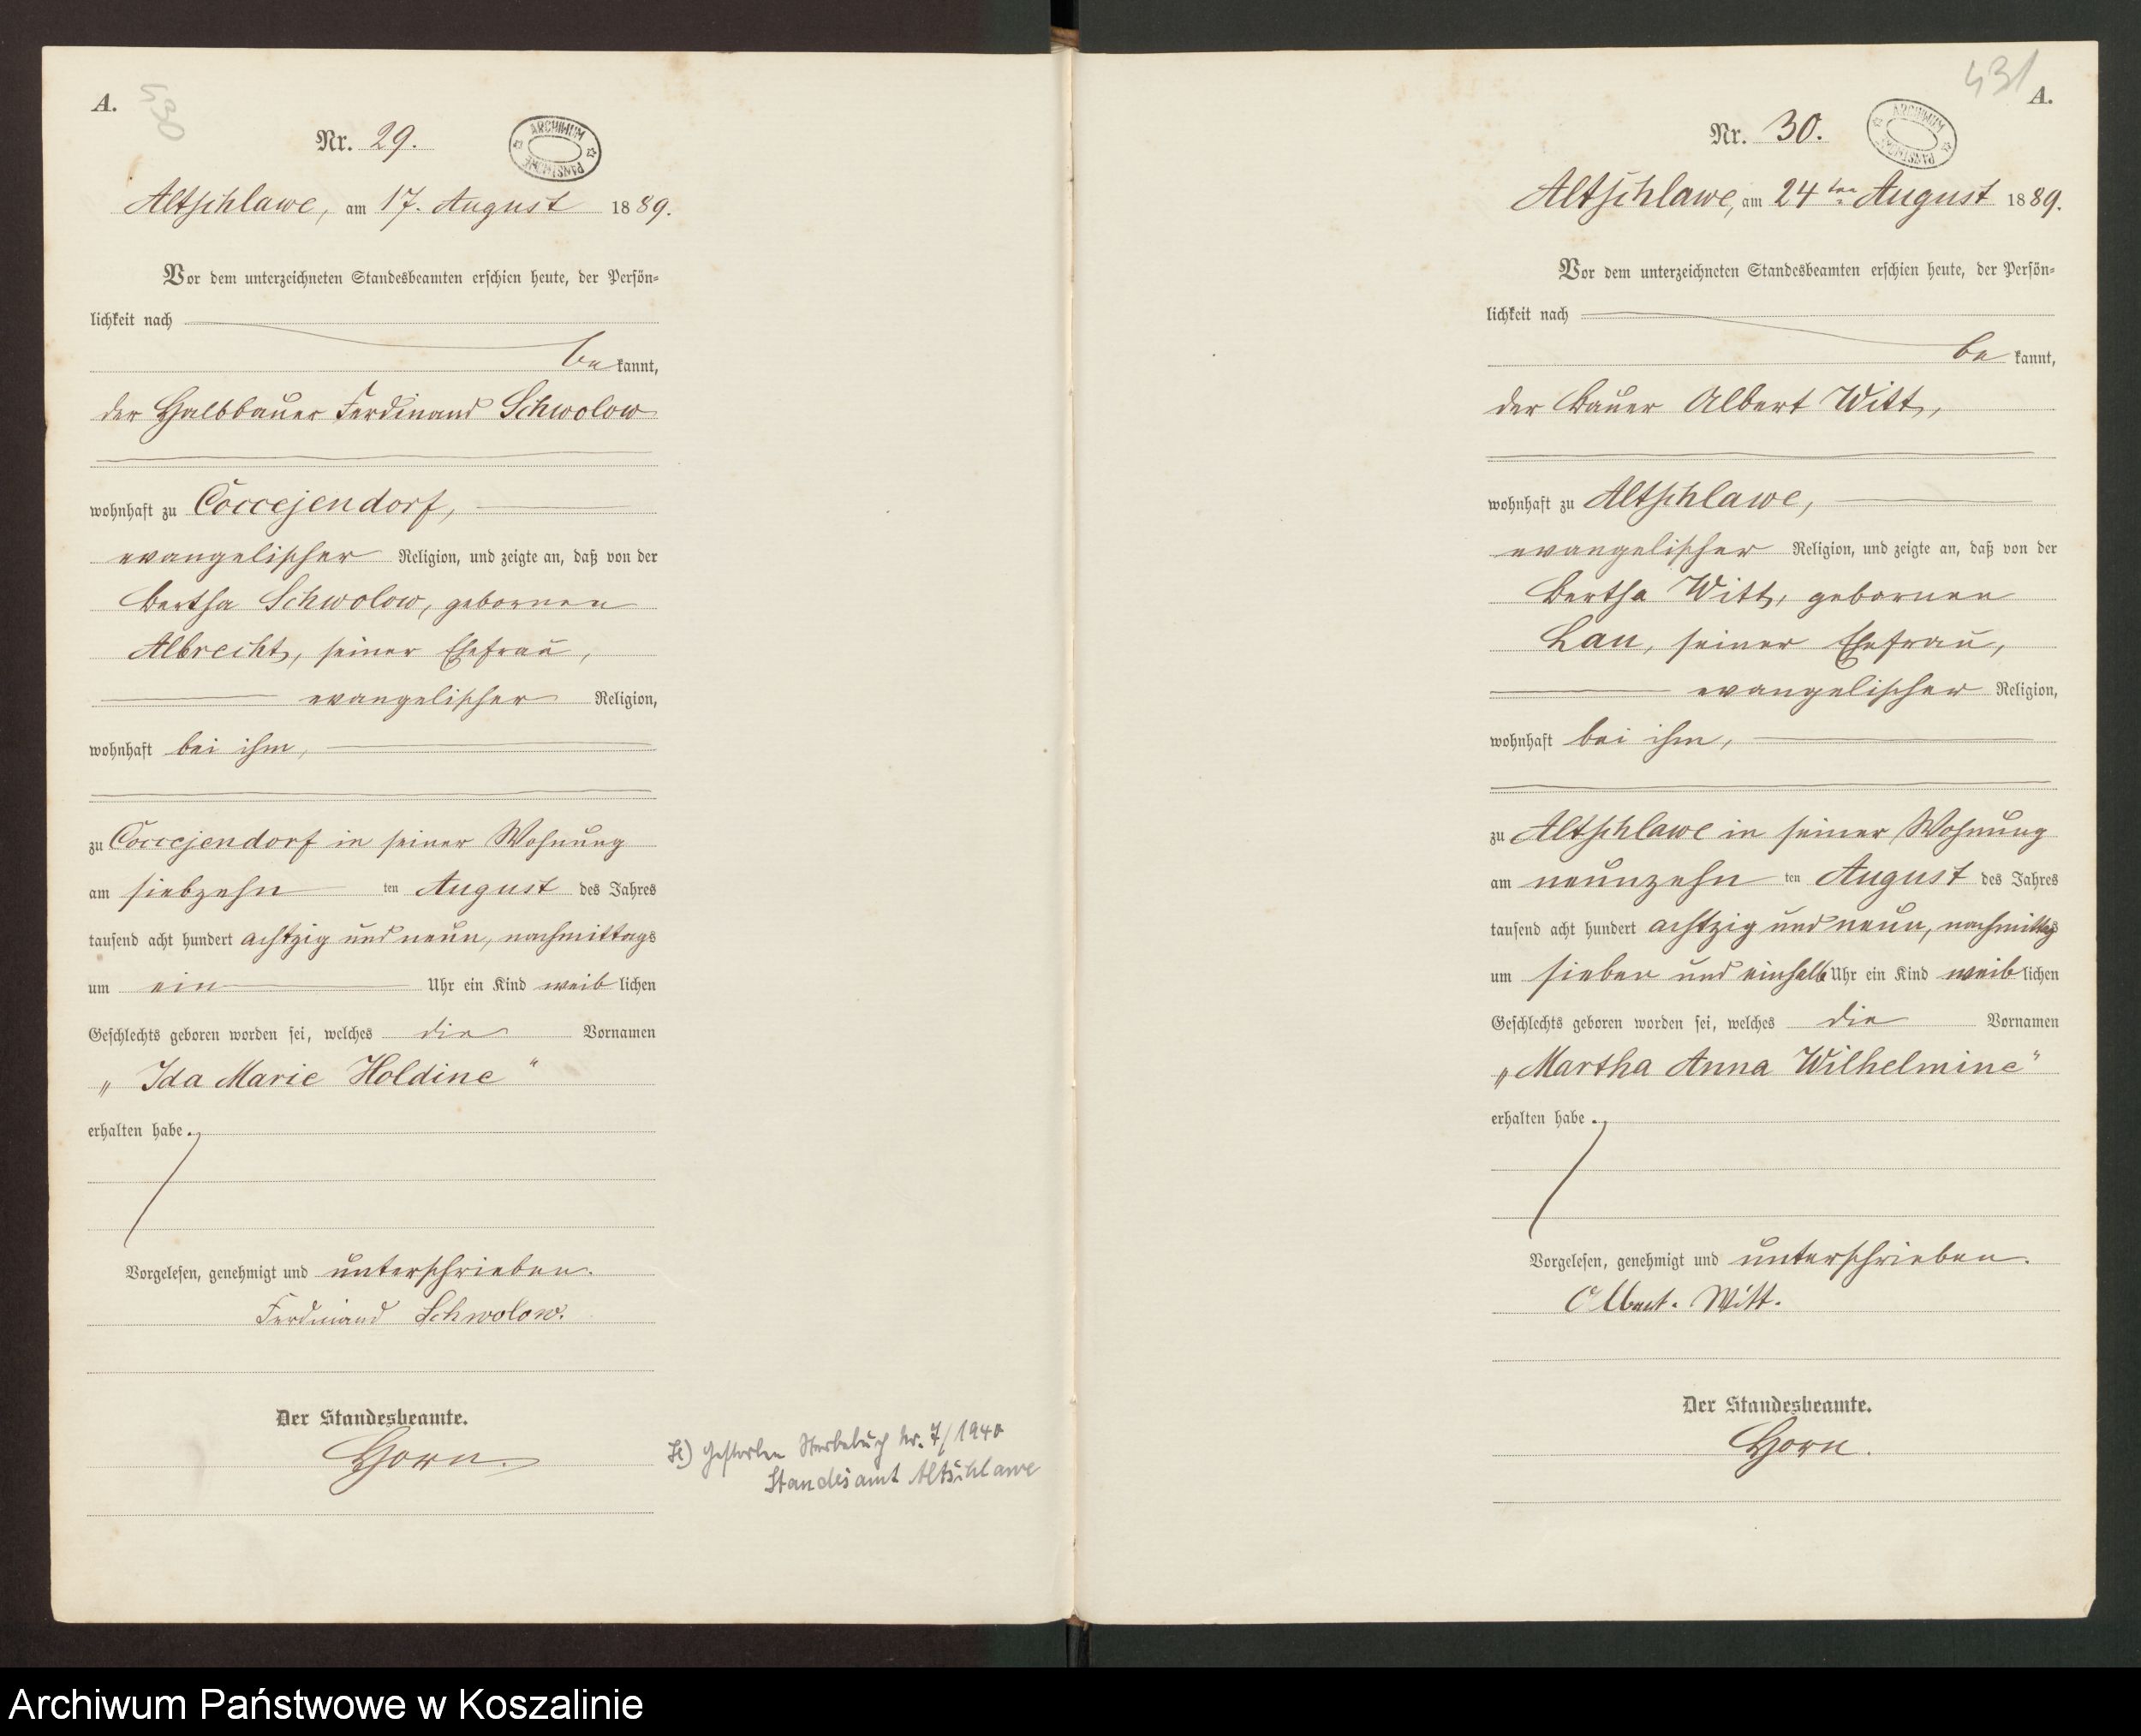 A.
430
Nr. 29.
ARCHIWUM
PAŃSTWOWE
Altschlawe, am 17. August 1889.
Vor dem unterzeichneten Standesbeamten erschien heute, der Persön-
lichkeit nach
bekannt,
der Halbbauer Ferdinand Schwolow
wohnhaft zu Coccejendorf,
evangelischer Religion, und zeigte an, daß von der
Bertha Schwolow, gebornen
Albrecht, seiner Ehefrau,
evangelischer Religion,
wohnhaft bei ihm,
zu Coccejendorf in seiner Wohnung
am siebzehnten August des Jahres
tausend acht hundert achtzig und neun, nachmittags
um ein Uhr ein Kind weiblichen
Geschlechts geboren worden sei, welches die Vornamen
„Ida Marie Holdine“
erhalten habe.
Vorgelesen, genehmigt und unterschrieben.
Ferdinand Schwolow.
Der Standesbeamte.
Horn.
Gestorben Sterbebuch Nr. 7/1940
Standesamt Altschlawe
431
A.
Nr. 30.
ARCHIWUM
PAŃSTWOWE
Altschlawe, am 24ten August 1889.
Vor dem unterzeichneten Standesbeamten erschien heute, der Persön-
lichkeit nach
bekannt,
der Bauer Albert Witt,
wohnhaft zu Altschlawe,
evangelischer Religion, und zeigte an, daß von der
Bertha Witt, gebornen
Lau, seiner Ehefrau,
evangelischer Religion,
wohnhaft bei ihm,
zu Altschlawe in seiner Wohnung
am neunzehnten August des Jahres
tausend acht hundert achtzig und neun, nachmittags
um sieben und einhalb Uhr ein Kind weiblichen
Geschlechts geboren worden sei, welches die Vornamen
„Martha Anna Wilhelmine“
erhalten habe.
Vorgelesen, genehmigt und unterschrieben.
Albert. Witt.
Der Standesbeamte.
Horn.
Archiwum Państwowe w Koszalinie